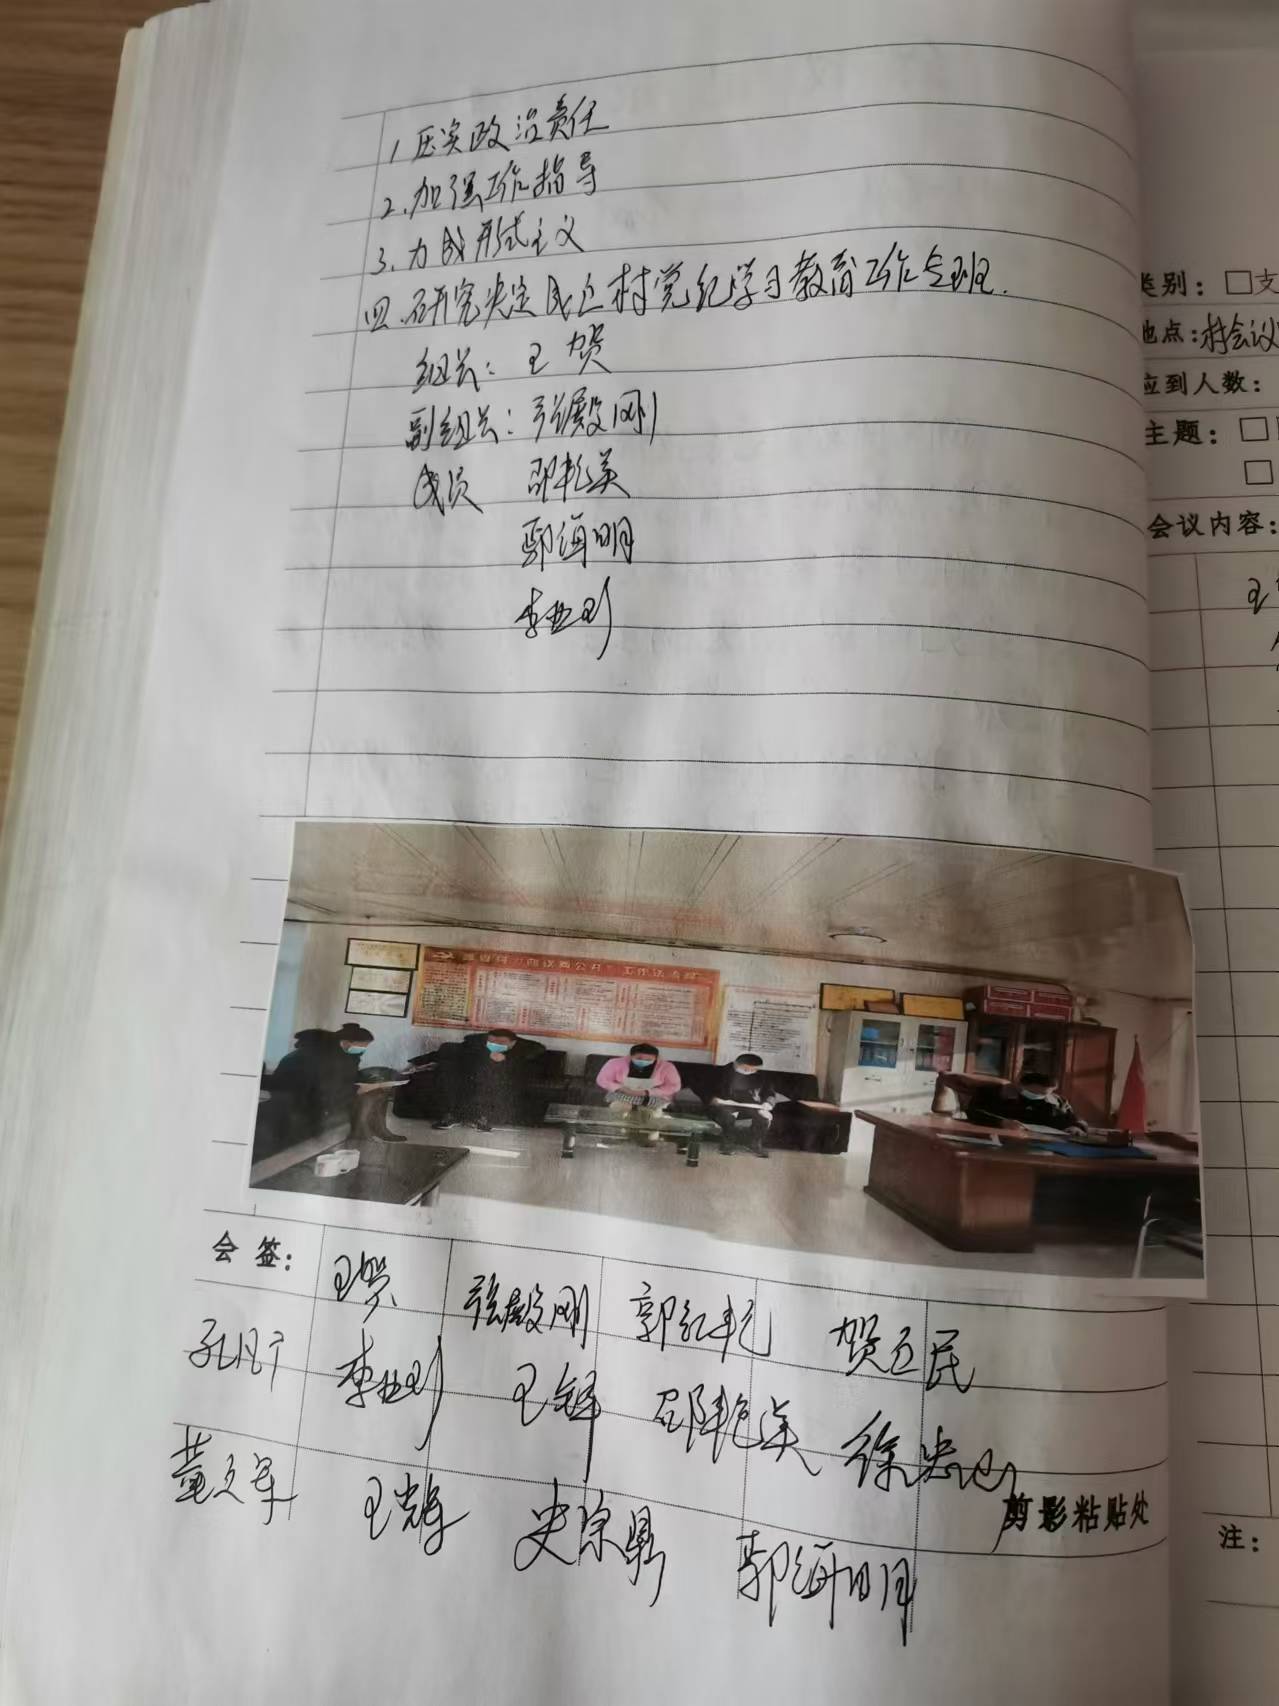 1 压实政治责任
2.加强工作指导
3.力戒形式主义
四.研究决定成立村党纪学习教育工作专班.
组长：王贺
副组长：张殿刚
成员 邵艳美
郭海明
李亚利
会签：
王贺 张殿刚 郭红艳 贺立民
孔凡宁 李亚利 王锋 邵艳美 徐忠
黄立军 王光辉 史宗鼎 郭海明
剪影粘贴处
类别：□支
地点：村会议
应到人数：
主题：□
□
会议内容：
王
注：